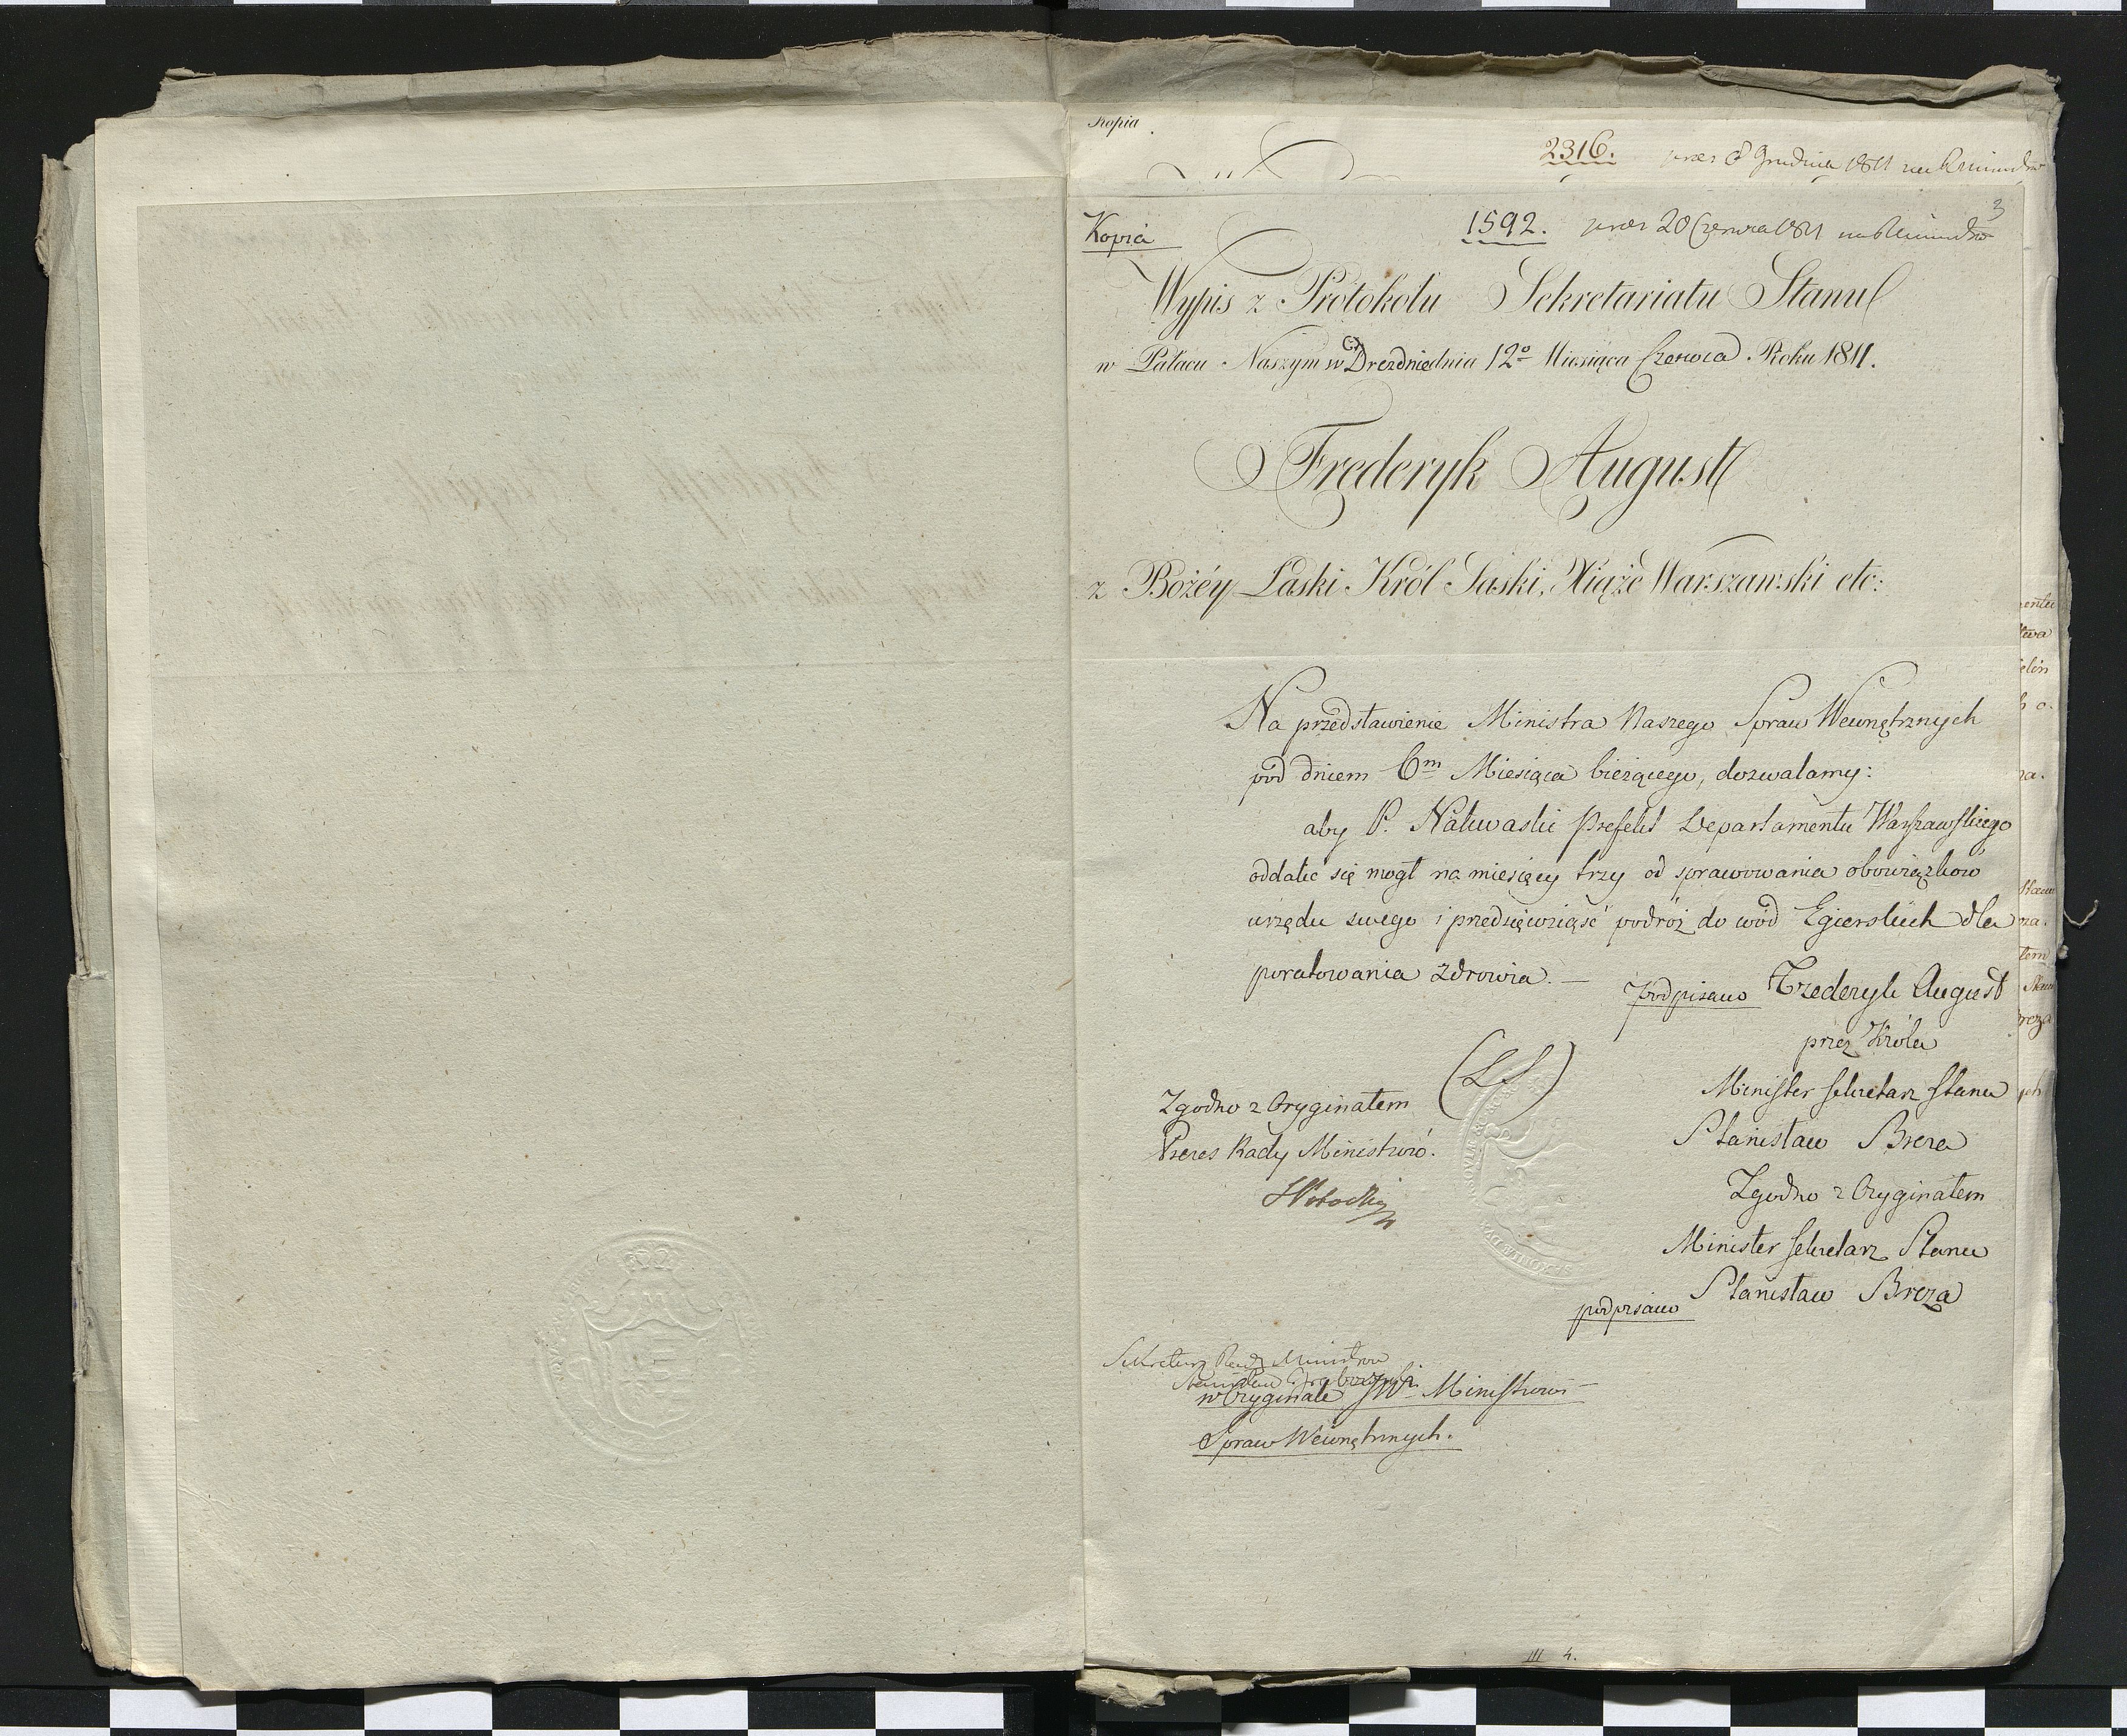 Kopia
2316. prez 8 Grudnia 1811 na R Ministrów
3
Kopia
1592. prez 20 Czerwca 1811 na R Ministrów
Wypis z Protokołu Sekretariatu Stanu
w Pałacu Naszym w Dreznie dnia 12º Miesiąca Czerwca Roku 1811.
Frederyk August
z Bożéy Łaski Król Saski, Xiąże Warszawski etc:
Na przedstawienie Ministra Naszego Spraw Wewnętrznych
pod dniem 6m Miesiąca bieżącego, dozwalamy:
aby P. Nakwaski Prefekt Departamentu Warszawskiego
oddalić się mogł na miesięcy trzy od sprawowania obowiązkow
urzędu swego i przedsięwziąść podróż do wód Egierskich dla
poratowania zdrowia. —
podpisano Frederyk August
przez Króla
(LS)
Minister Sekretarz Stanu
Zgodno z Oryginałem
Stanisław Breza
Prezes Rady Ministrów.
Zgodno z Oryginałem
S Potocki
Minister Sekretarz Stanu
Stanisław Breza
podpisano
Sekretarz Rady Ministrów
Stanisław Grabowski
w Oryginale JW. Ministrowi
Spraw Wewnętrznych.
III 4.